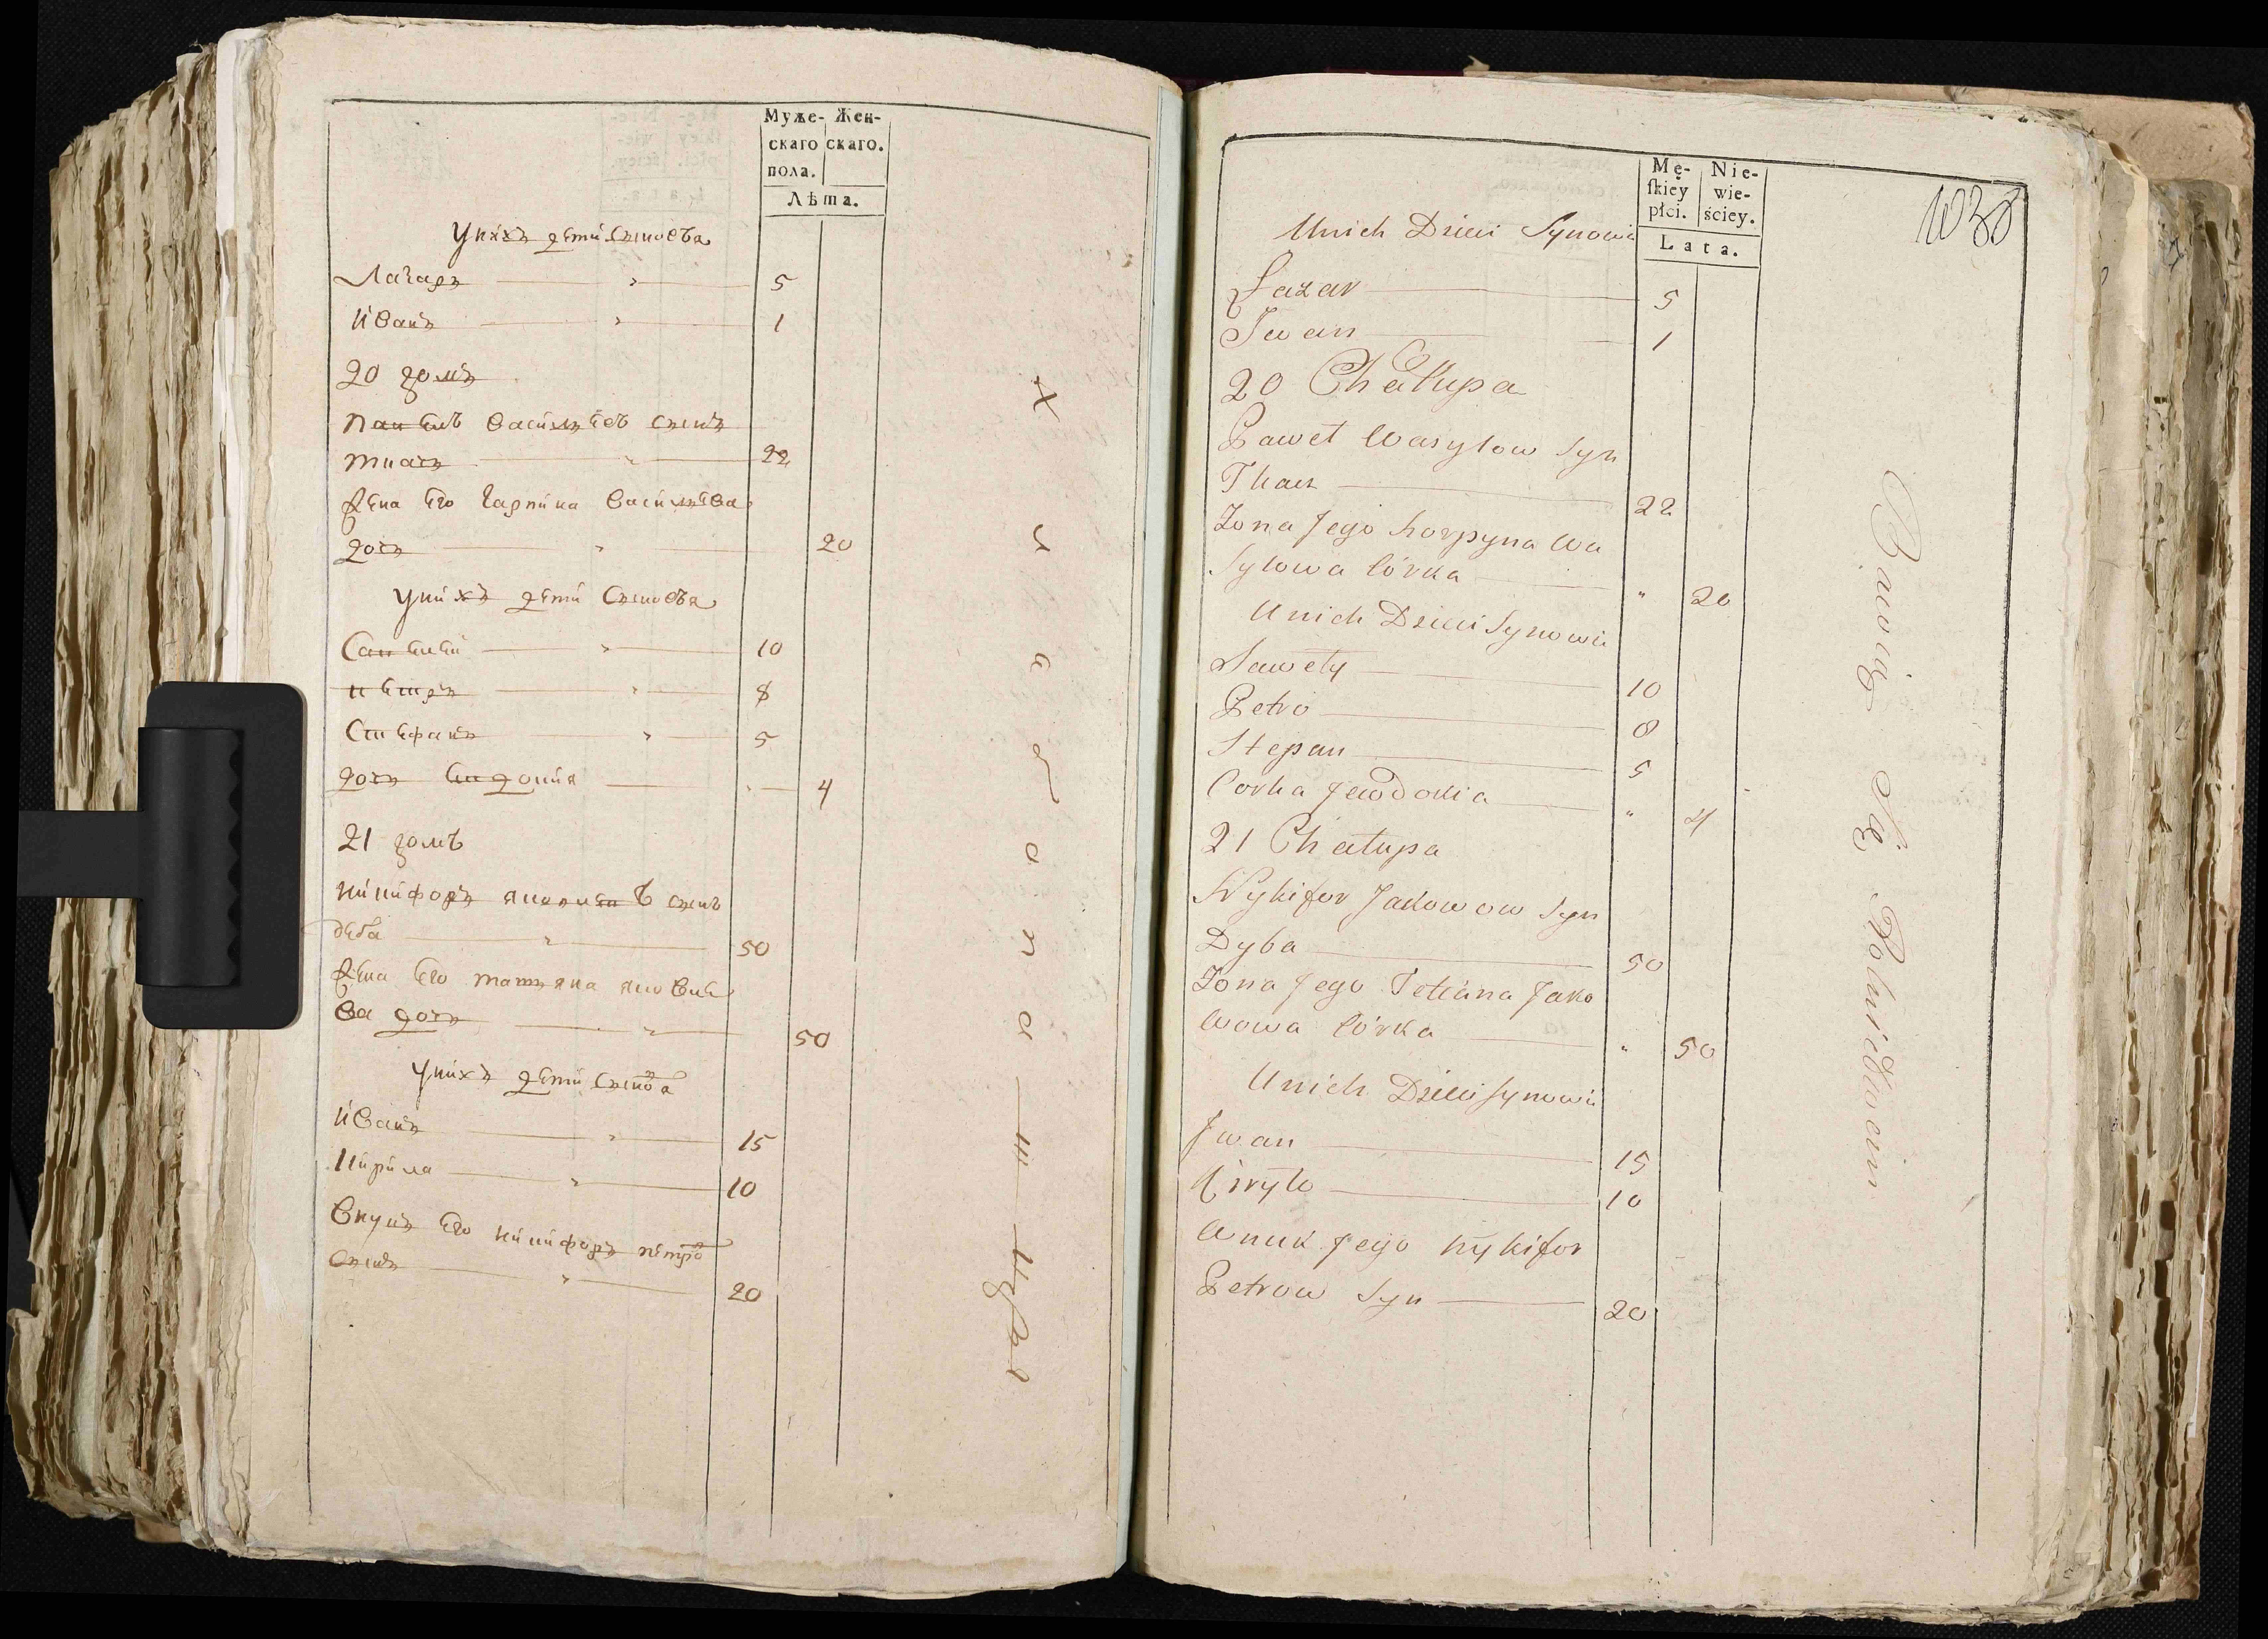 Муже- Жен-
скаго скаго.
пола.
Лѣта.
Унихъ дети Сыновѣа
Лазаръ 5
Иванъ 1
20 домъ
павелъ василѣевъ сынъ
ткачъ 22
Жена его гарпина василѣва
дочъ 20
Унихъ дети Сыновѣа
Савелей 10
петръ 8
Стефанъ 5
дочъ евдокия 4
21 домъ
никифоръ яковлевъ сынъ
деба 50
Жена его татьяна яковле
ва дочъ 50
Унихъ дети Сынова
Иванъ 15
Кирила 10
внукъ его никифоръ петро
сынъ 20
Mę- Nie-
ſkiey wie-
płci. ściey.
Lata.
1038
Unich Dzieci Synowie
Lazar 5
Iwan 1
20 Chałupa
Paweł Wasylow Syn
Tkacz 22
Żona Jego horpyna Wa
Sylowa Córka " 20
Unich Dzieci Synowie
Sawety 10
Petro 8
Stepan 5
Corka Jewdokia " 4
21 Chałupa
Nykifor Jakowow Syn
Dyba 50
Żona Jego Tetiana Jako
Wowa Córka " 50
Unich Dzieci Synowie
Iwan 15
Kiryło 10
Wnuk Jego Nykifor
Petrow Syn 20